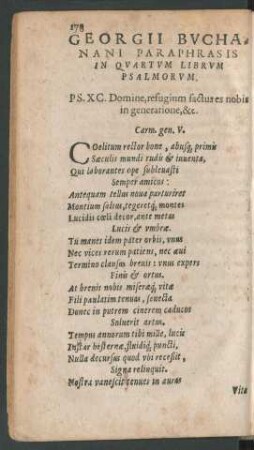 178
GEORGII BVCHA-
NANI PARAPHRASIS
IN QVARTVM LIBRVM
PSALMORVM.
PS. XC. Domine, refugium factus es nobis
in generatione, &c.
Carm. gen. V.
COelitum rector bone, abusq, primis
Saeculis mundi rudis & inuenta,
Qui laborantes ope subleuasti
Semper amicus:
Antequam tellus noua parturiret
Montium saltus, tegeretq, montes
Lucidi cœli decor, ante metas
Lucis & vmbræ.
Tu manes idem pater orbis, vnus
Nec vices rerum patiens, nec aui
Termino clausus breuis: vnus expers
Finis & ortus.
At breuis nobis miseraq, vitæ
Fili paulatim tenuat, senecta
Donec in putrem cinerem caducos
Soluerit artus.
Tempus annorum tibi mille, lucis
Instar hesternæ, fluidiq, puncti,
Nulla decursus quod vbi recessit,
Signa relinquit.
Nostra vanescit tenues in auras
Vita